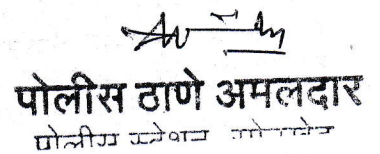 पोलीस ठाणे अमलदार
पोलीस स्टेशन